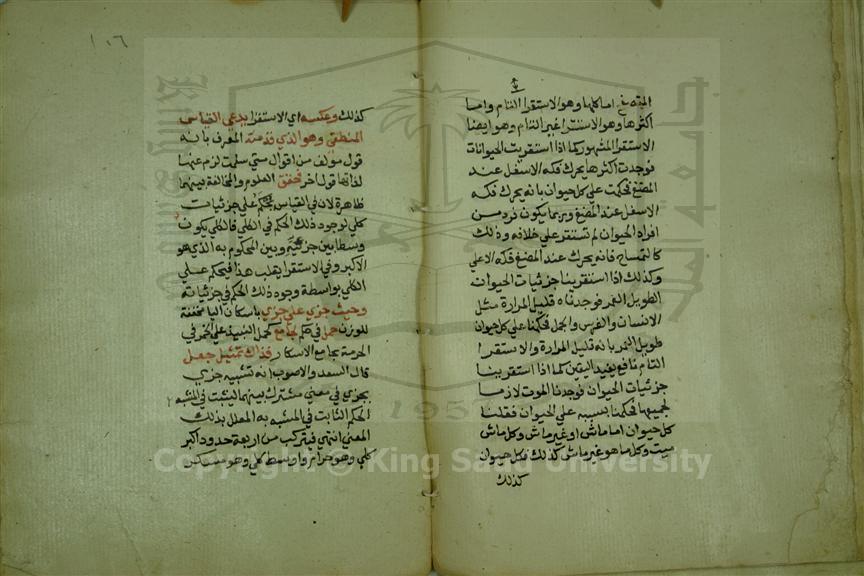 المضغ اما كلها وهو الاستقرا التام واما
اكثرها وهو الاستقرا غير التام وهو ايضا
الاستقرا المشهور كما اذا استقريت الحيوانات
فوجدت اكثرها يحرك فكه الاسفل عند
المضغ فحكمت علي كل حيوان بانه يحرك فكه
الاسفل عند المضغ وربما يكون فرد من
افراد الحيوان لم تستقر علي خلافه وذلك
كالتمساح فانه يحرك عند المضغ فكه الاعلي
وكذلك اذا استقرينا جزئيات الحيوان
الطويل العمر فوجدناه قليل المرارة مثل
الانسان والفرس والجمل فحكمنا علي كل حيوان
طويل العمر بانه قليل المرارة والاستقرا
التام نافع يفيد اليقين كما اذا استقرينا
جزئيات الحيوان فوجدنا الموت لازما
لجميعها فحكمنا بسببه علي الحيوان فقلنا
كل حيوان اما ماش او غير ماش وكل ماش
ميت وكل ما هو غير ماش كذلك فكل حيوان
كذلك
١٠٦
كذلك وعكسه اي الاستقرا يدعي القياس
المنطقي وهو الذي قدمته المعرف بانه
قول مولف من اقوال متي سلمت لزم عنها
لذاتها قول اخر فحقق العلوم والمخالفة بينهما
ظاهرة لان في القياس تحكم علي جزئيات
كلي لوجود ذلك الحكم في الكلي فالكلي يكون
وسطا بين جزئيه وبين المحكوم به الذي هو
الاكبر وفي الاستقرا يقلب هذا فيحكم علي
الكلي بواسطة وجود ذلك الحكم في جزئياته
وحيث جزي علي جزي باسكان اليا مخففة
للوزن حمل في حكم لجامع كحمل النبيذ علي الخمر في
الحرمة بجامع الاسكار فذاك تمثيل جعل
قال السعد والاصوب انه تشبيه جزي
بجزي في معني مشترك بينهما ليثبت في المشبه
الحكم الثابت في المشبه به المعلل بذلك
المعني انتهي فيتركب من اربعة حدود اكبر
كلي وهو حرام واوسط كلي وهو مسكر
جامعة الملك سعود
1957
Copyright © King Saud University